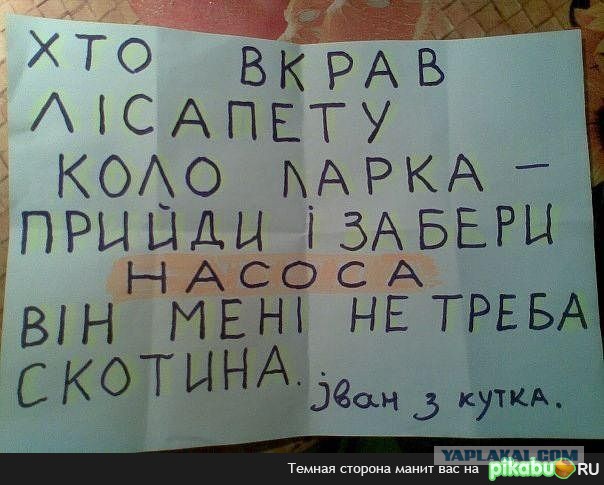 ХТО ВКРАВ
ЛІСАПЕТУ
КОЛО ПАРКА –
ПРИЙДИ І ЗАБЕРИ
НАСОСА
ВІН МЕНІ НЕ ТРЕБА
СКОТИНА.
Jван з кутка.
YAPLAKAL.COM
Темная сторона манит вас на pikabu.RU